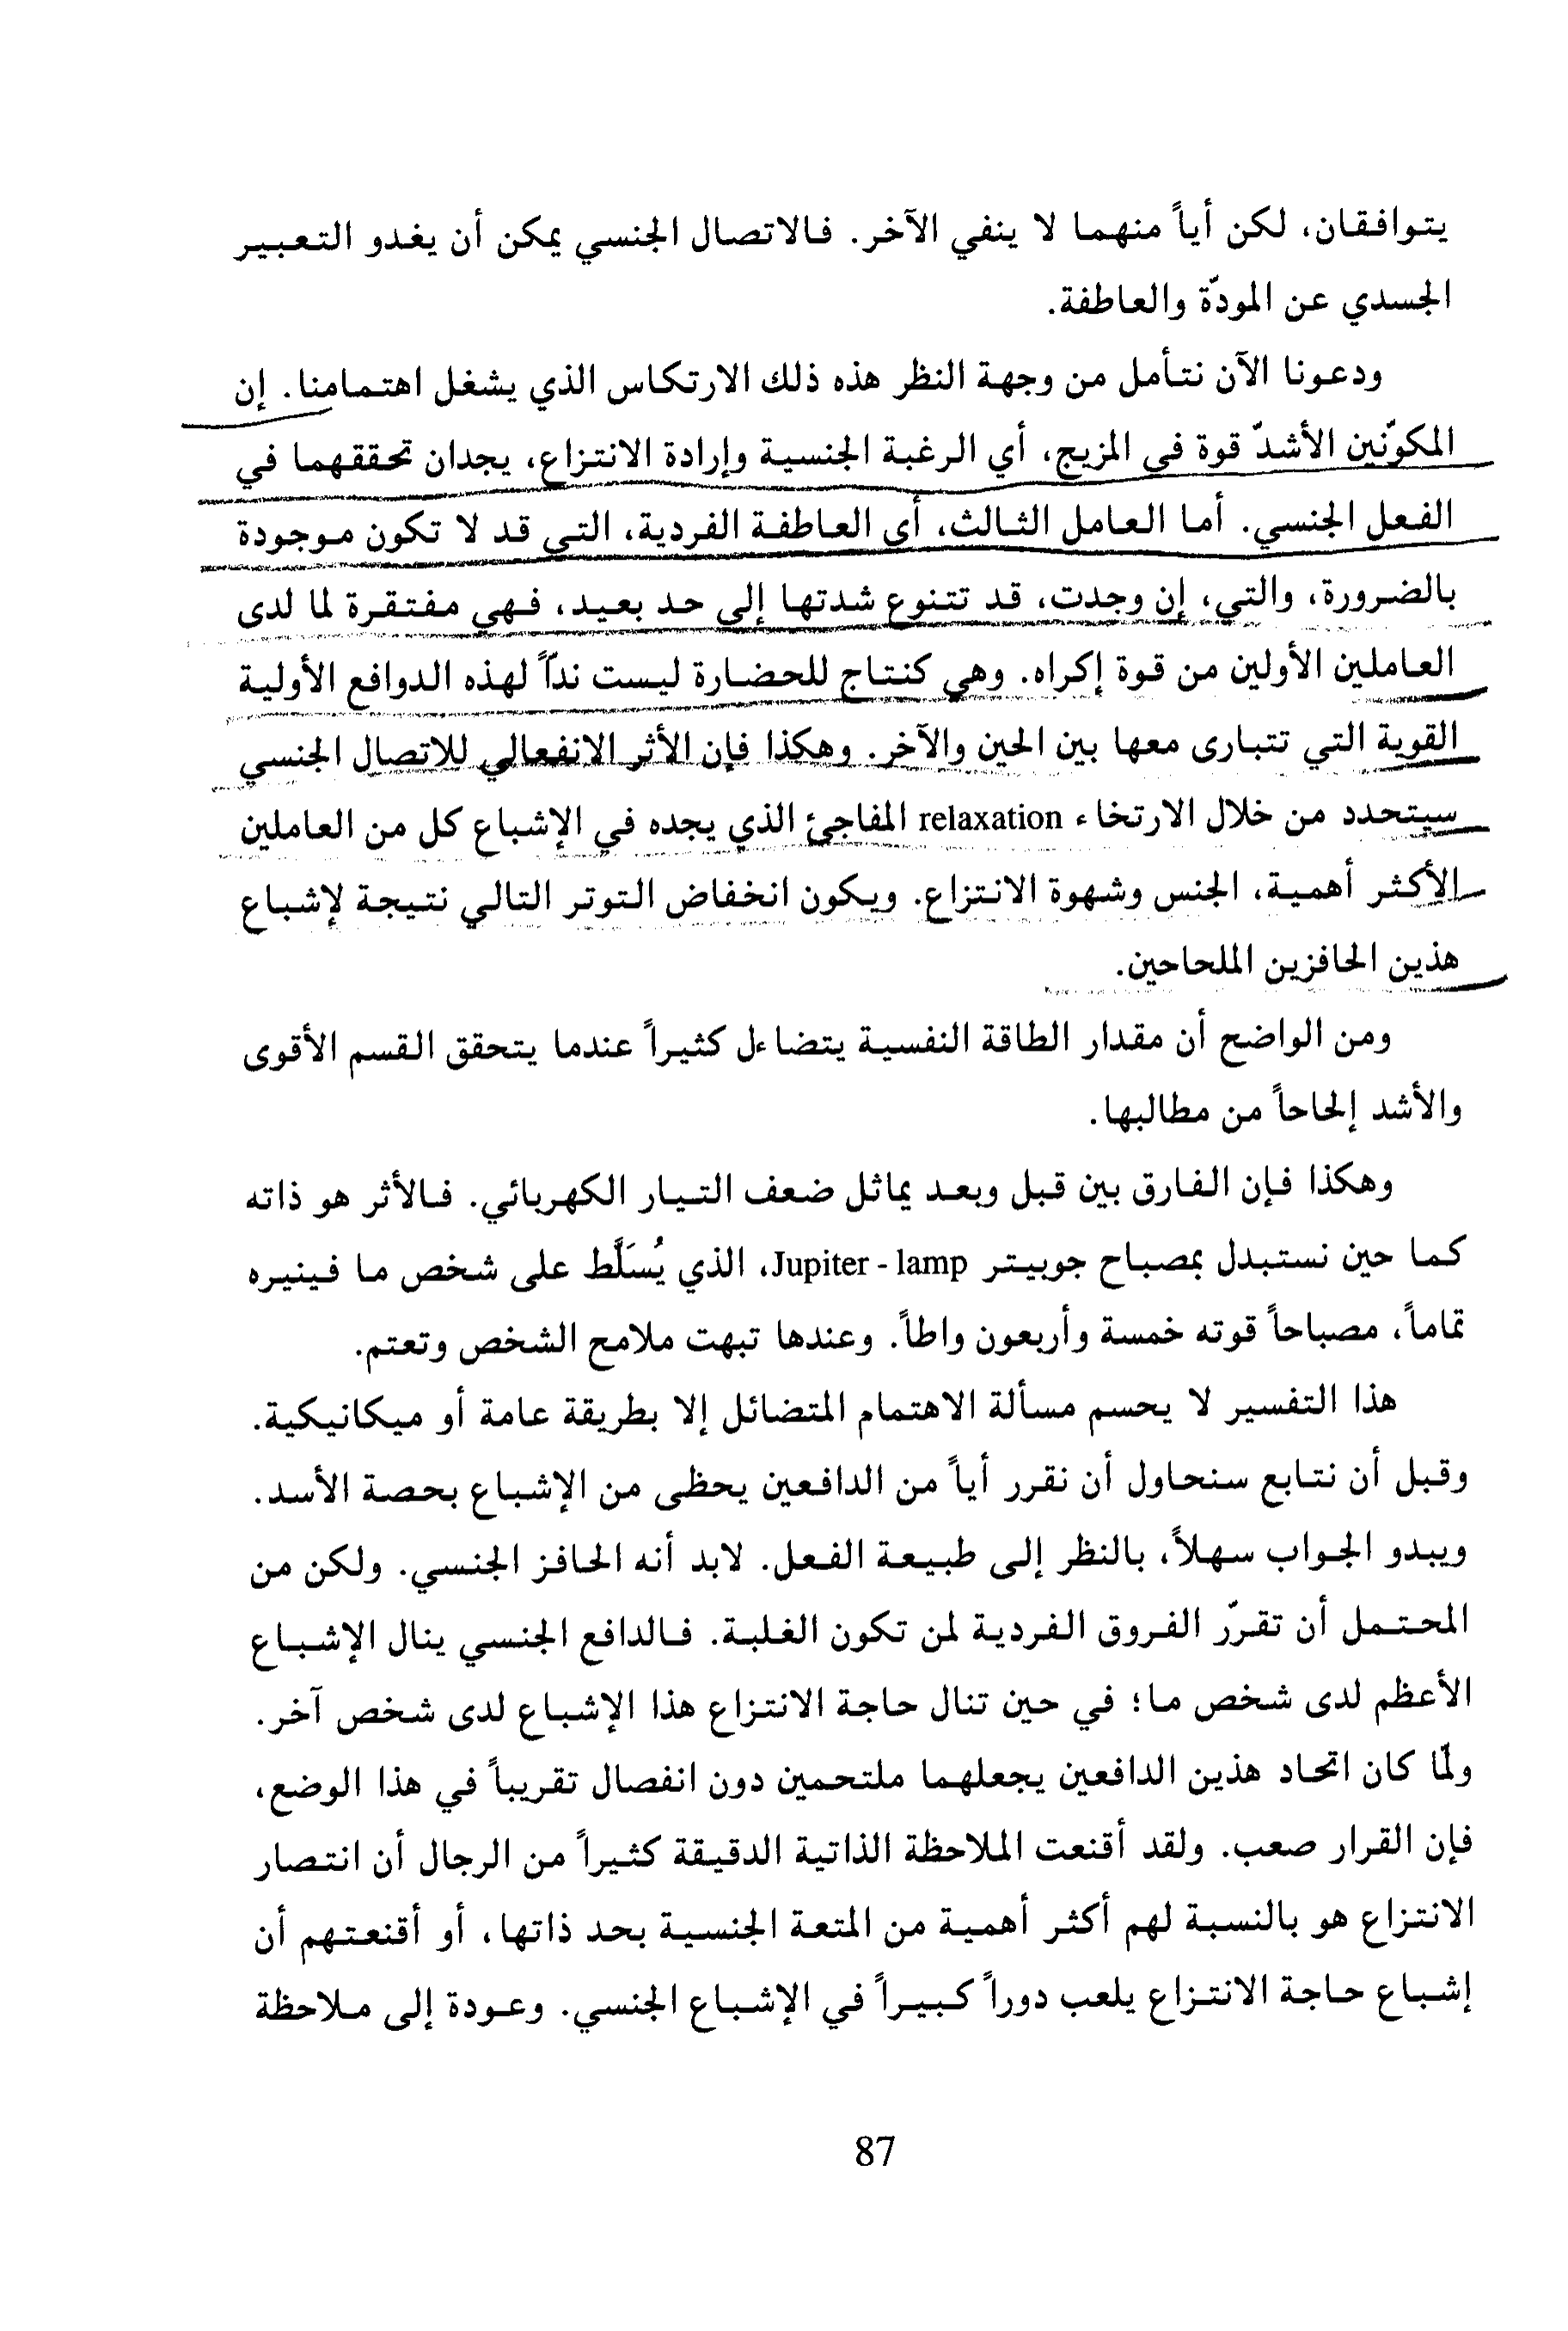 يتوافقان، لكن أياً منهما لا ينفي الآخر. فالاتصال الجنسي يمكن أن يغدو التعبير
الجسدي عن المودّة والعاطفة.
ودعونا الآن نتأمل من وجهة النظر هذه ذلك الارتكاس الذي يشغل اهتمامنا. إن
المكوّنين الأشدّ قوة في المزيج، أي الرغبة الجنسية وإرادة الانتزاع، يجدان تحققهما في
الفعل الجنسي. أما العامل الثالث، أي العاطفة الفردية، التي قد لا تكون موجودة
بالضرورة، والتي، إن وجدت، قد تتنوع شدتها إلى حد بعيد، فهي مفتقرة لما لدى
العاملين الأولين من قوة إكراه. وهي كنتاج للحضارة ليست ندّاً لهذه الدوافع الأولية
القوية التي تتبارى معها بين الحين والآخر. وهكذا فإن الأثر الانفعالي للاتصال الجنسي
سيتحدد من خلال الارتخاء relaxation المفاجئ الذي يجده في الإشباع كل من العاملين
الأكثر أهمية، الجنس وشهوة الانتزاع. ويكون انخفاض التوتر التالي نتيجة لإشباع
هذين الحافزين الملحاحين.
ومن الواضح أن مقدار الطاقة النفسية يتضاءل كثيراً عندما يتحقق القسم الأقوى
والأشد إلحاحاً من مطالبها.
وهكذا فإن الفارق بين قبل وبعد يماثل ضعف التيار الكهربائي. فالأثر هو ذاته
كما حين نستبدل بمصباح جوبيتر Jupiter - lamp، الذي يُسَلَّط على شخص ما فينيره
تماماً، مصباحاً قوته خمسة وأربعون واطاً. وعندها تبهت ملامح الشخص وتعتم.
هذا التفسير لا يحسم مسألة الاهتمام المتضائل إلا بطريقة عامة أو ميكانيكية.
وقبل أن نتابع سنحاول أن نقرر أياً من الدافعين يحظى من الإشباع بحصة الأسد.
ويبدو الجواب سهلاً، بالنظر إلى طبيعة الفعل. لابد أنه الحافز الجنسي. ولكن من
المحتمل أن تقرّر الفروق الفردية لمن تكون الغلبة. فالدافع الجنسي ينال الإشباع
الأعظم لدى شخص ما؛ في حين تنال حاجة الانتزاع هذا الإشباع لدى شخص آخر.
ولمّا كان اتحاد هذين الدافعين يجعلهما ملتحمين دون انفصال تقريباً في هذا الوضع،
فإن القرار صعب. ولقد أقنعت الملاحظة الذاتية الدقيقة كثيراً من الرجال أن انتصار
الانتزاع هو بالنسبة لهم أكثر أهمية من المتعة الجنسية بحد ذاتها، أو أقنعتهم أن
إشباع حاجة الانتزاع يلعب دوراً كبيراً في الإشباع الجنسي. وعودة إلى ملاحظة
87